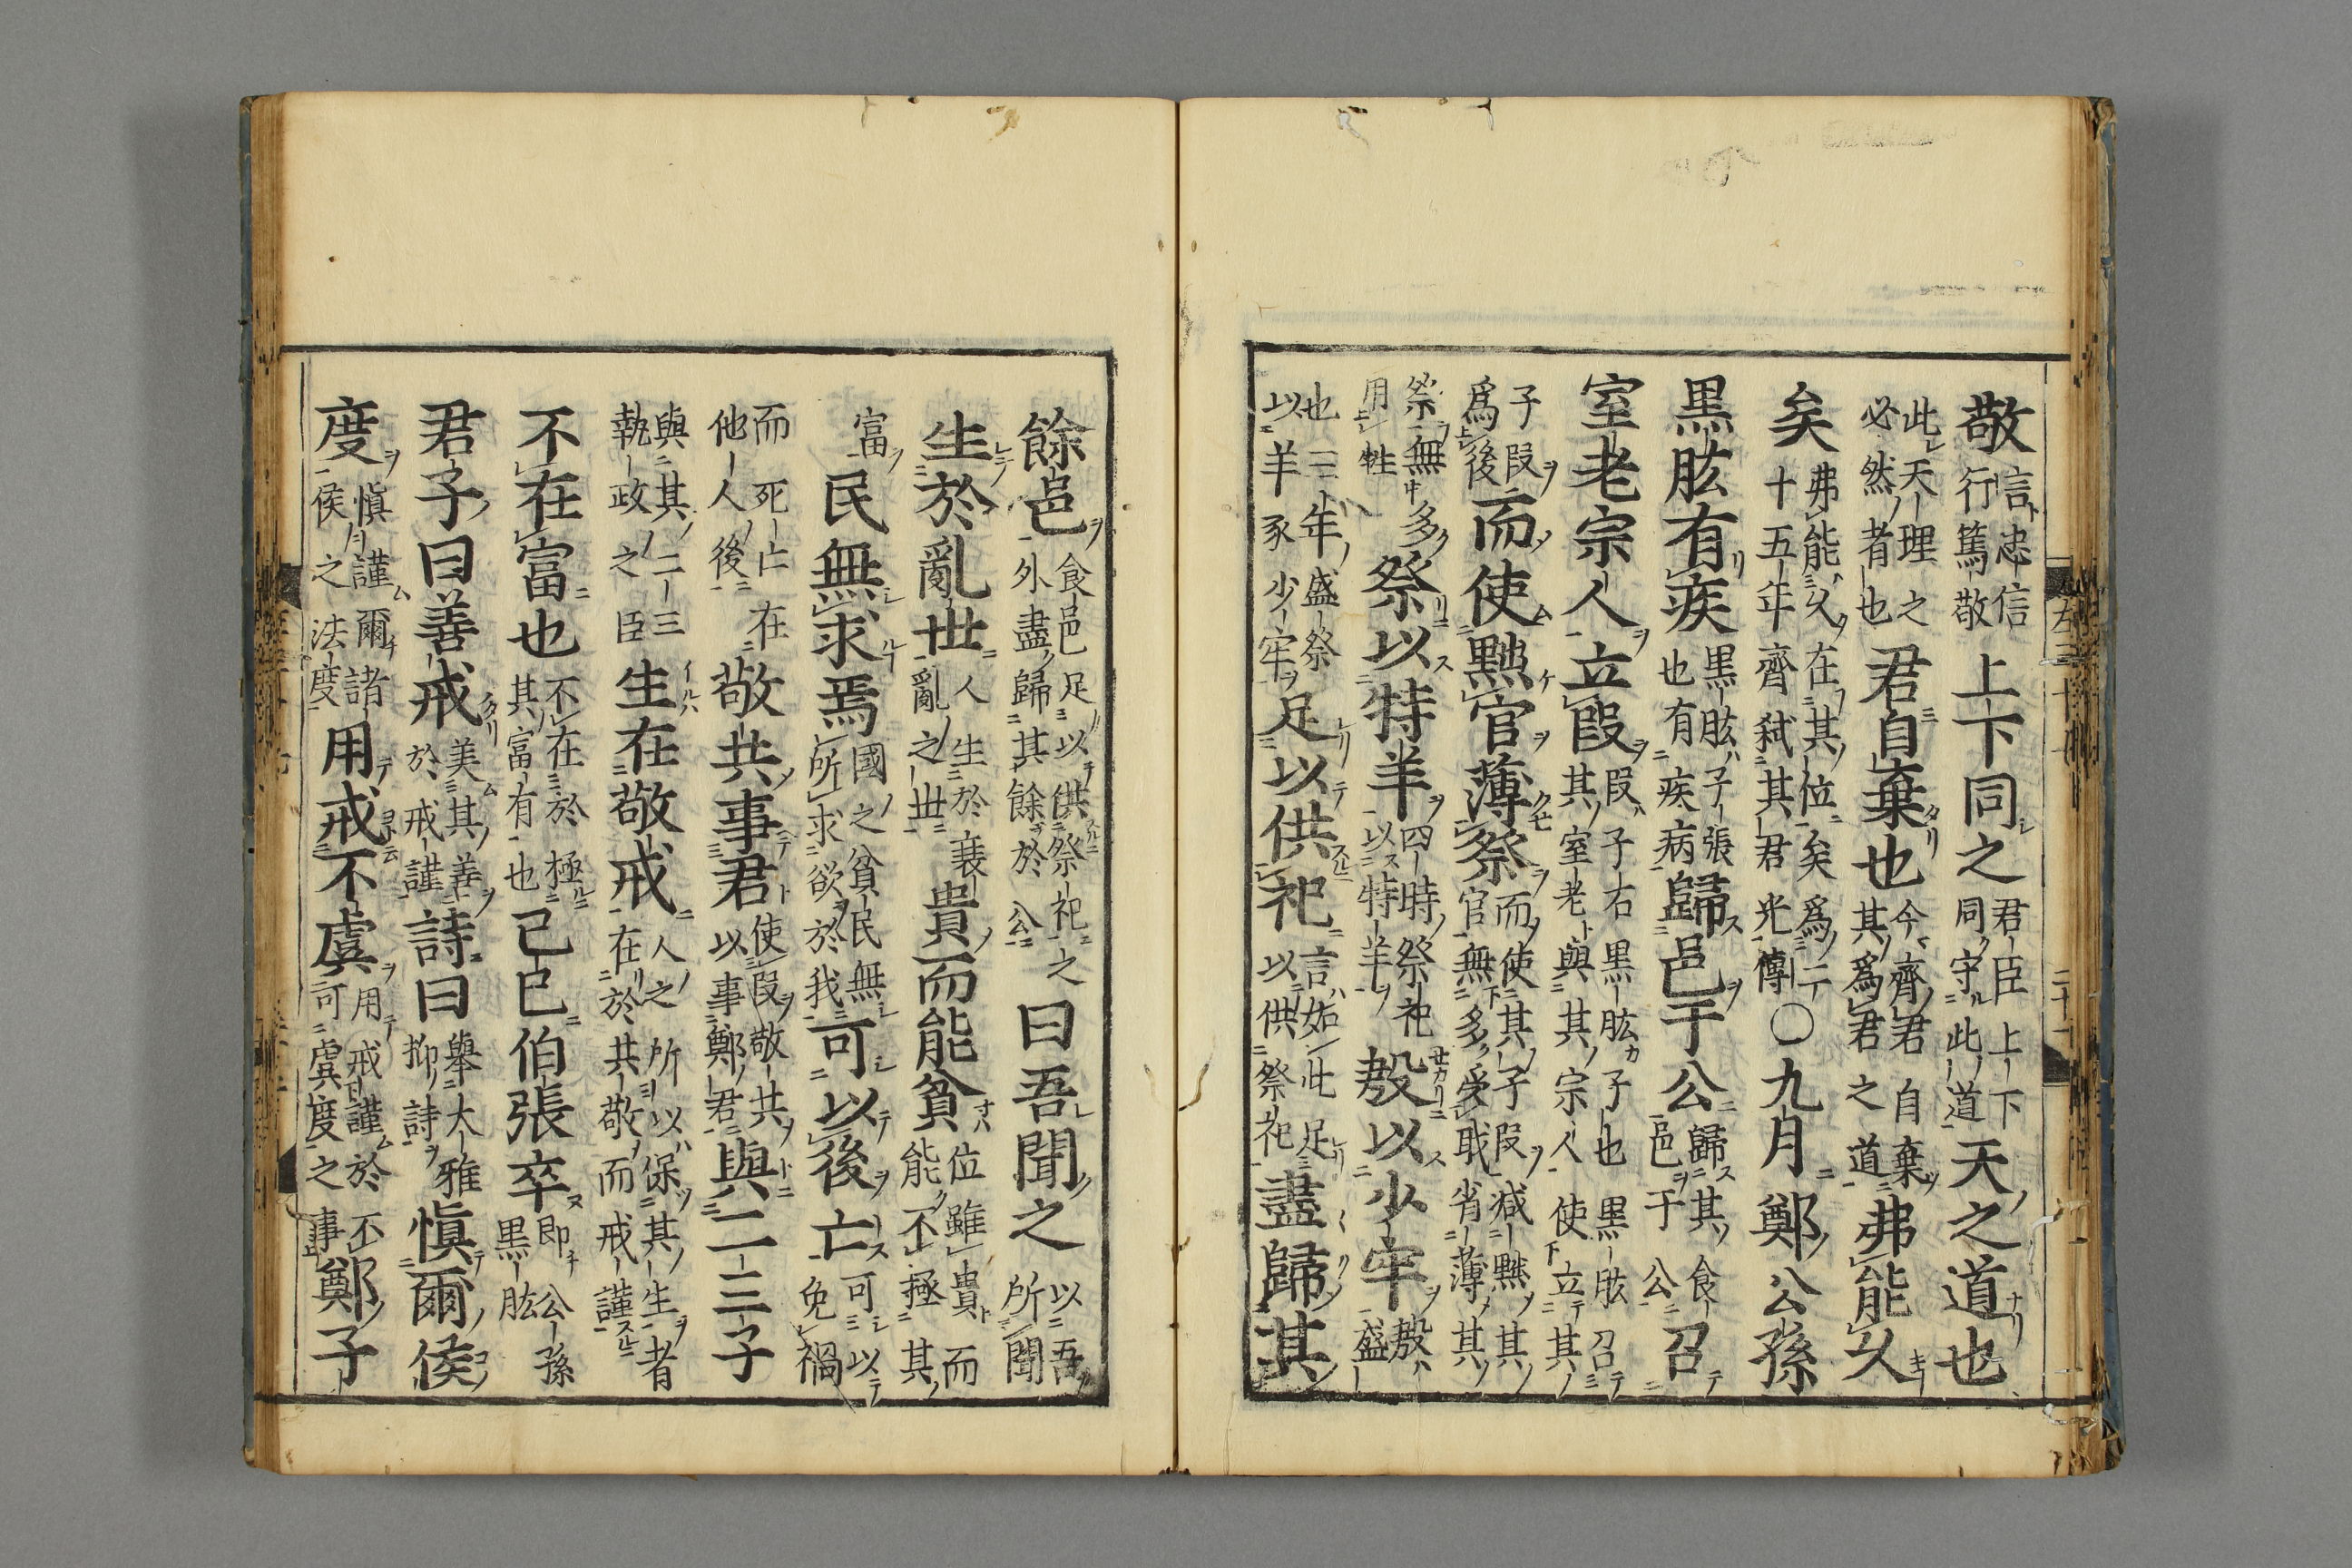 敬信忠信行篤敬上下同之君臣上下同守此道天之道也
此天理之必然者也君自棄也今齊君自棄其爲君之道弗能久
矣弗能久在其位矣爲二十五年齊弑其君光傳〇九月鄭公孫
黒肱有疾黒肱子張也有疾病歸邑于公歸其食邑于公召
室老宗人立段段子右黒肱子也黒肱召其室老與其宗人使立其
子段爲後而使黜官薄祭而使其子段減黜其官無多受職省薄其
祭無多用牲祭以特羊四時祭祀以特羊殷以少牢殷盛
也三年盛祭以羊豕少牢足以供祀言如此足以供祭祀盡歸其
餘邑食邑足以供祭祀之外盡歸其餘於公曰吾聞之以吾所聞
生於亂世人生於衰亂之世貴而能貧位雖貴而能不極其
富民無求焉國之貧民無所求欲於我可以後亡可以免禍
而死亡在他人後敬共事君使段敬共以事鄭君與二三子
與其二三執政之臣生在敬戒人之所以保其生者在於共敬而戒謹
不在富也不在於極其富有也己巳伯張卒即公孫黒肱
君子曰善戒美其善於戒謹詩曰擧大雅抑詩愼爾侯
度愼謹爾諸侯之法度用戒不虞用戒謹於不可虞度之事鄭子